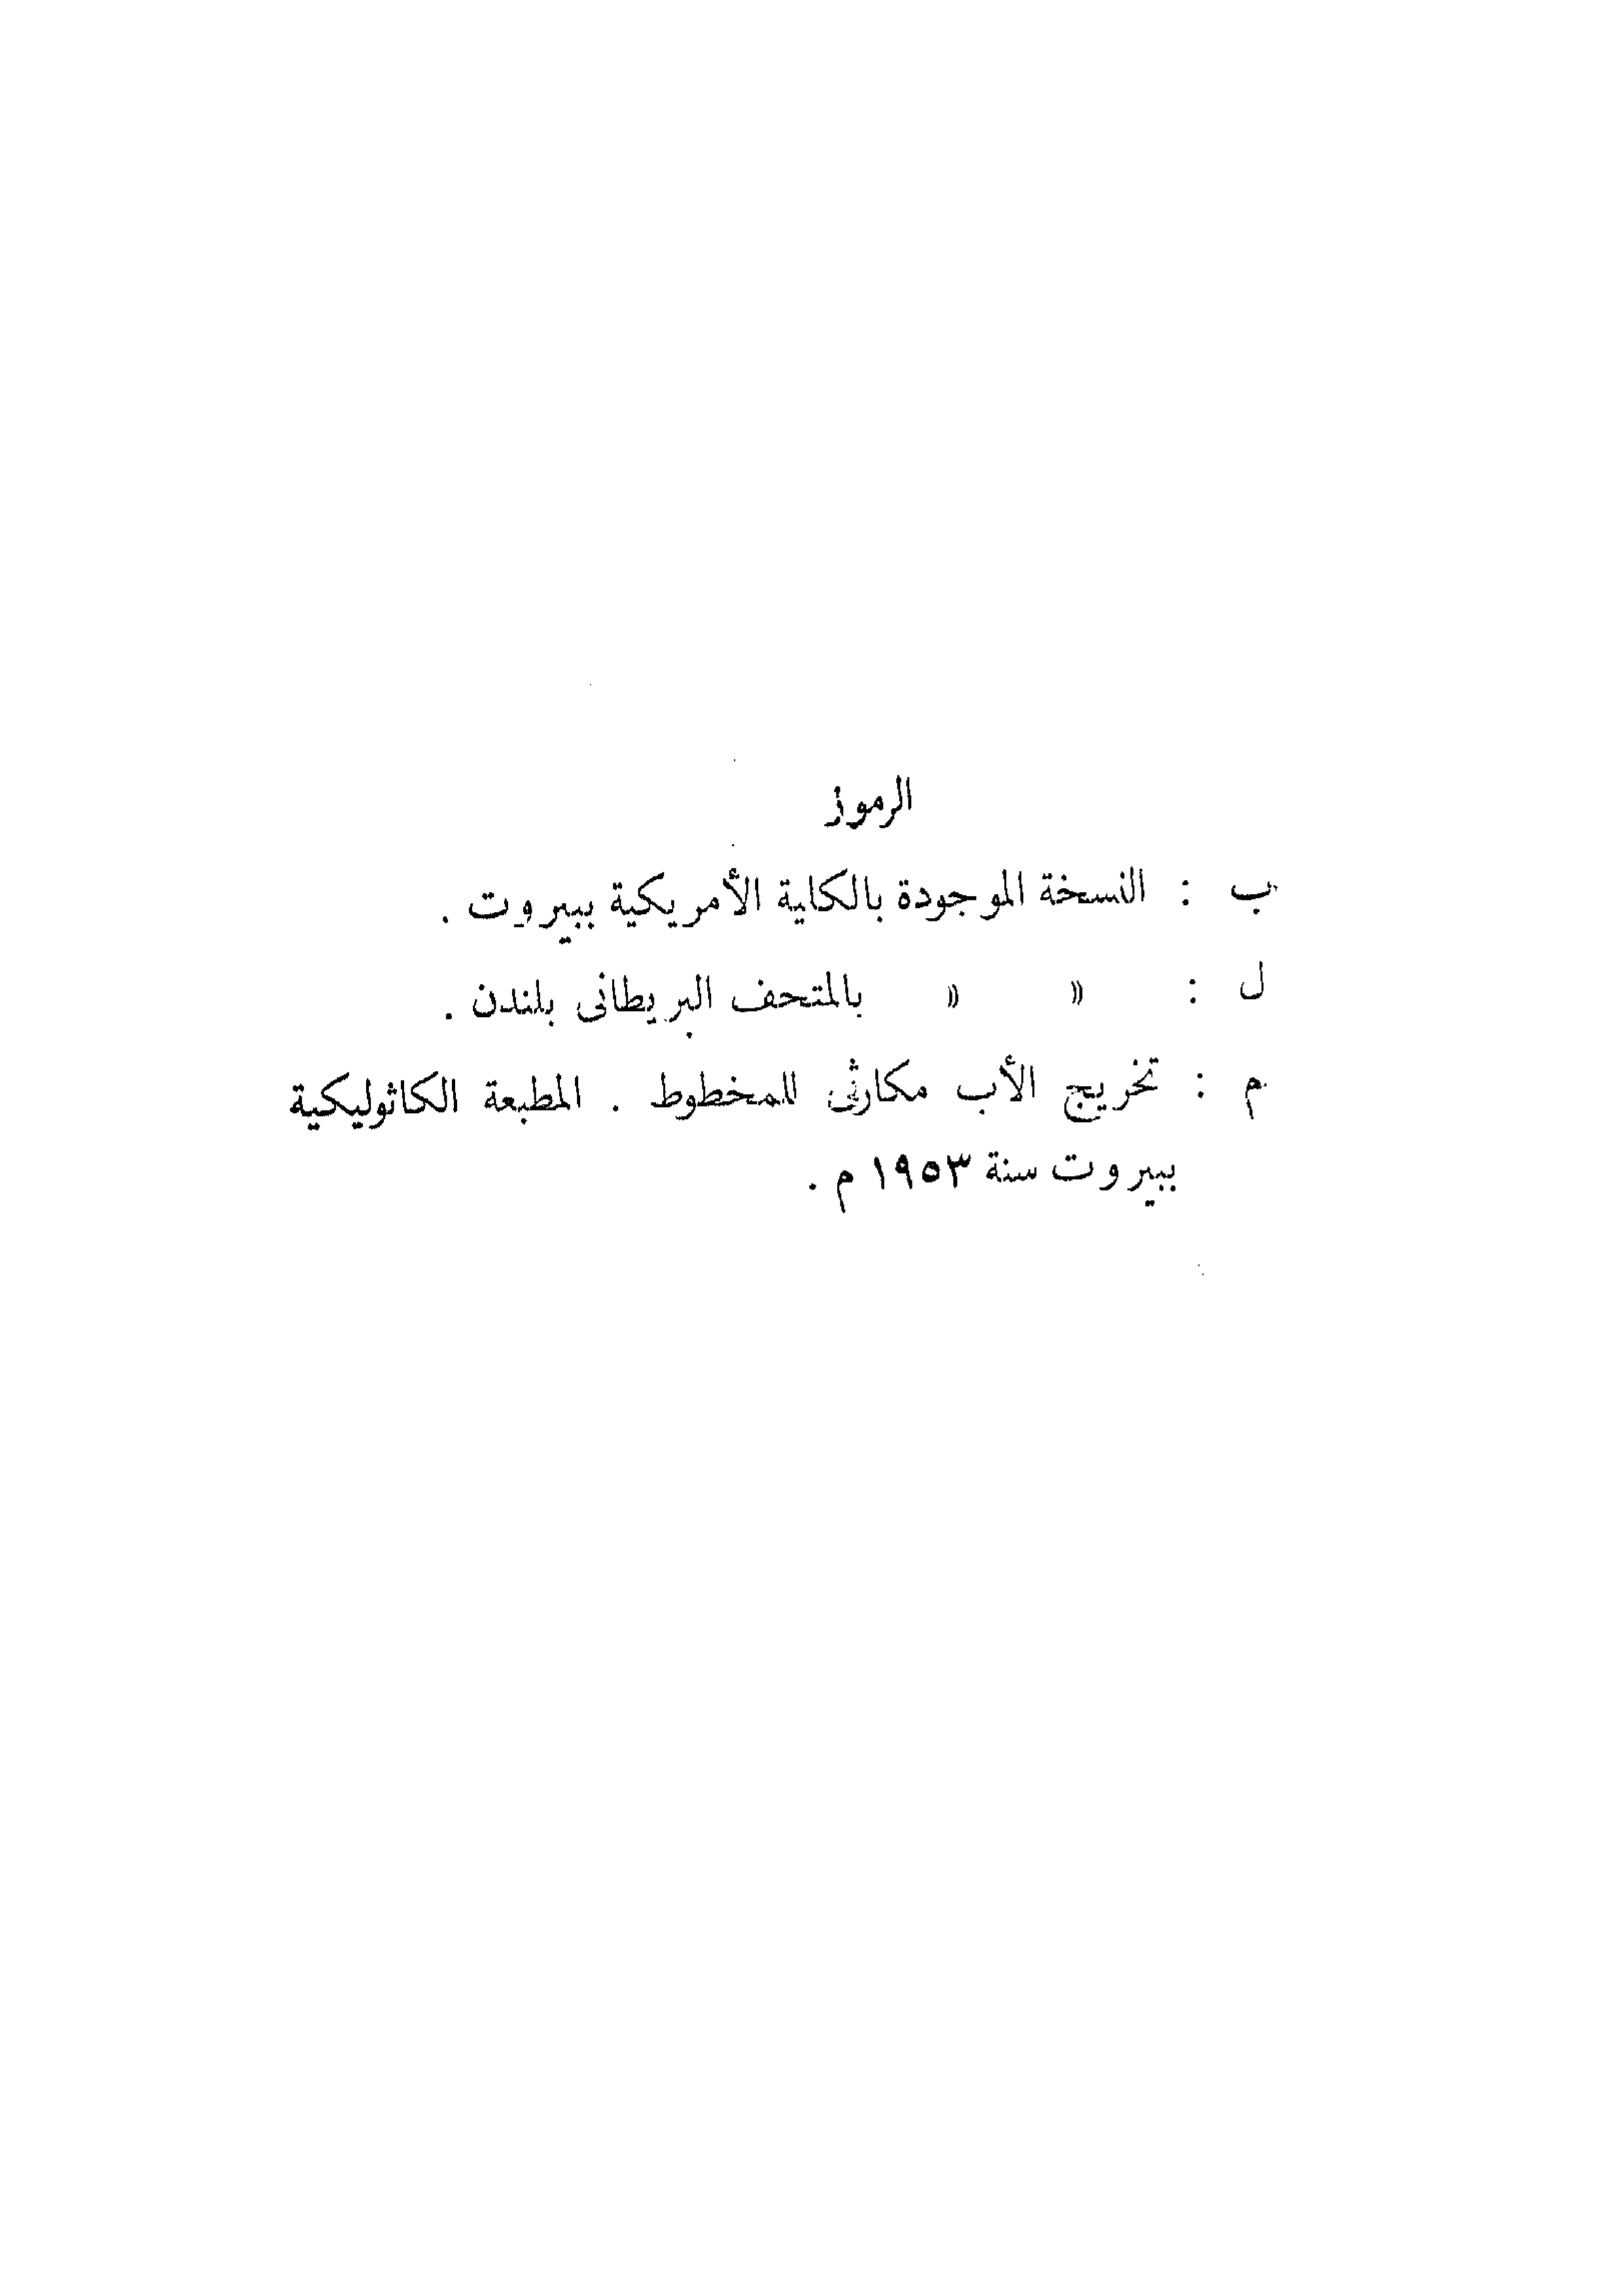 الرموز
ب : النسخة الموجودة بالكلية الأمريكية ببيروت .
ل : » » بالمتحف البريطانى بلندن .
م : تخريج الأب مكارثى للمخطوط . المطبعة الكاثوليكية
ببيروت سنة ١٩٥٣ م .